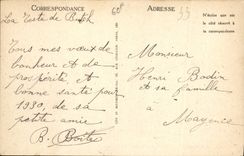 CORRESPONDANCE
La Teste de Buch
Tous mes vœux de
bonheur et de
prospérité et
bonne santé pour
1930, de sa
petite amie
B.
ADRESSE
33
N'écrire que sur
le côté réservé à
la correspondance
Monsieur
Henri Bodin
et sa famille
à
Mayence